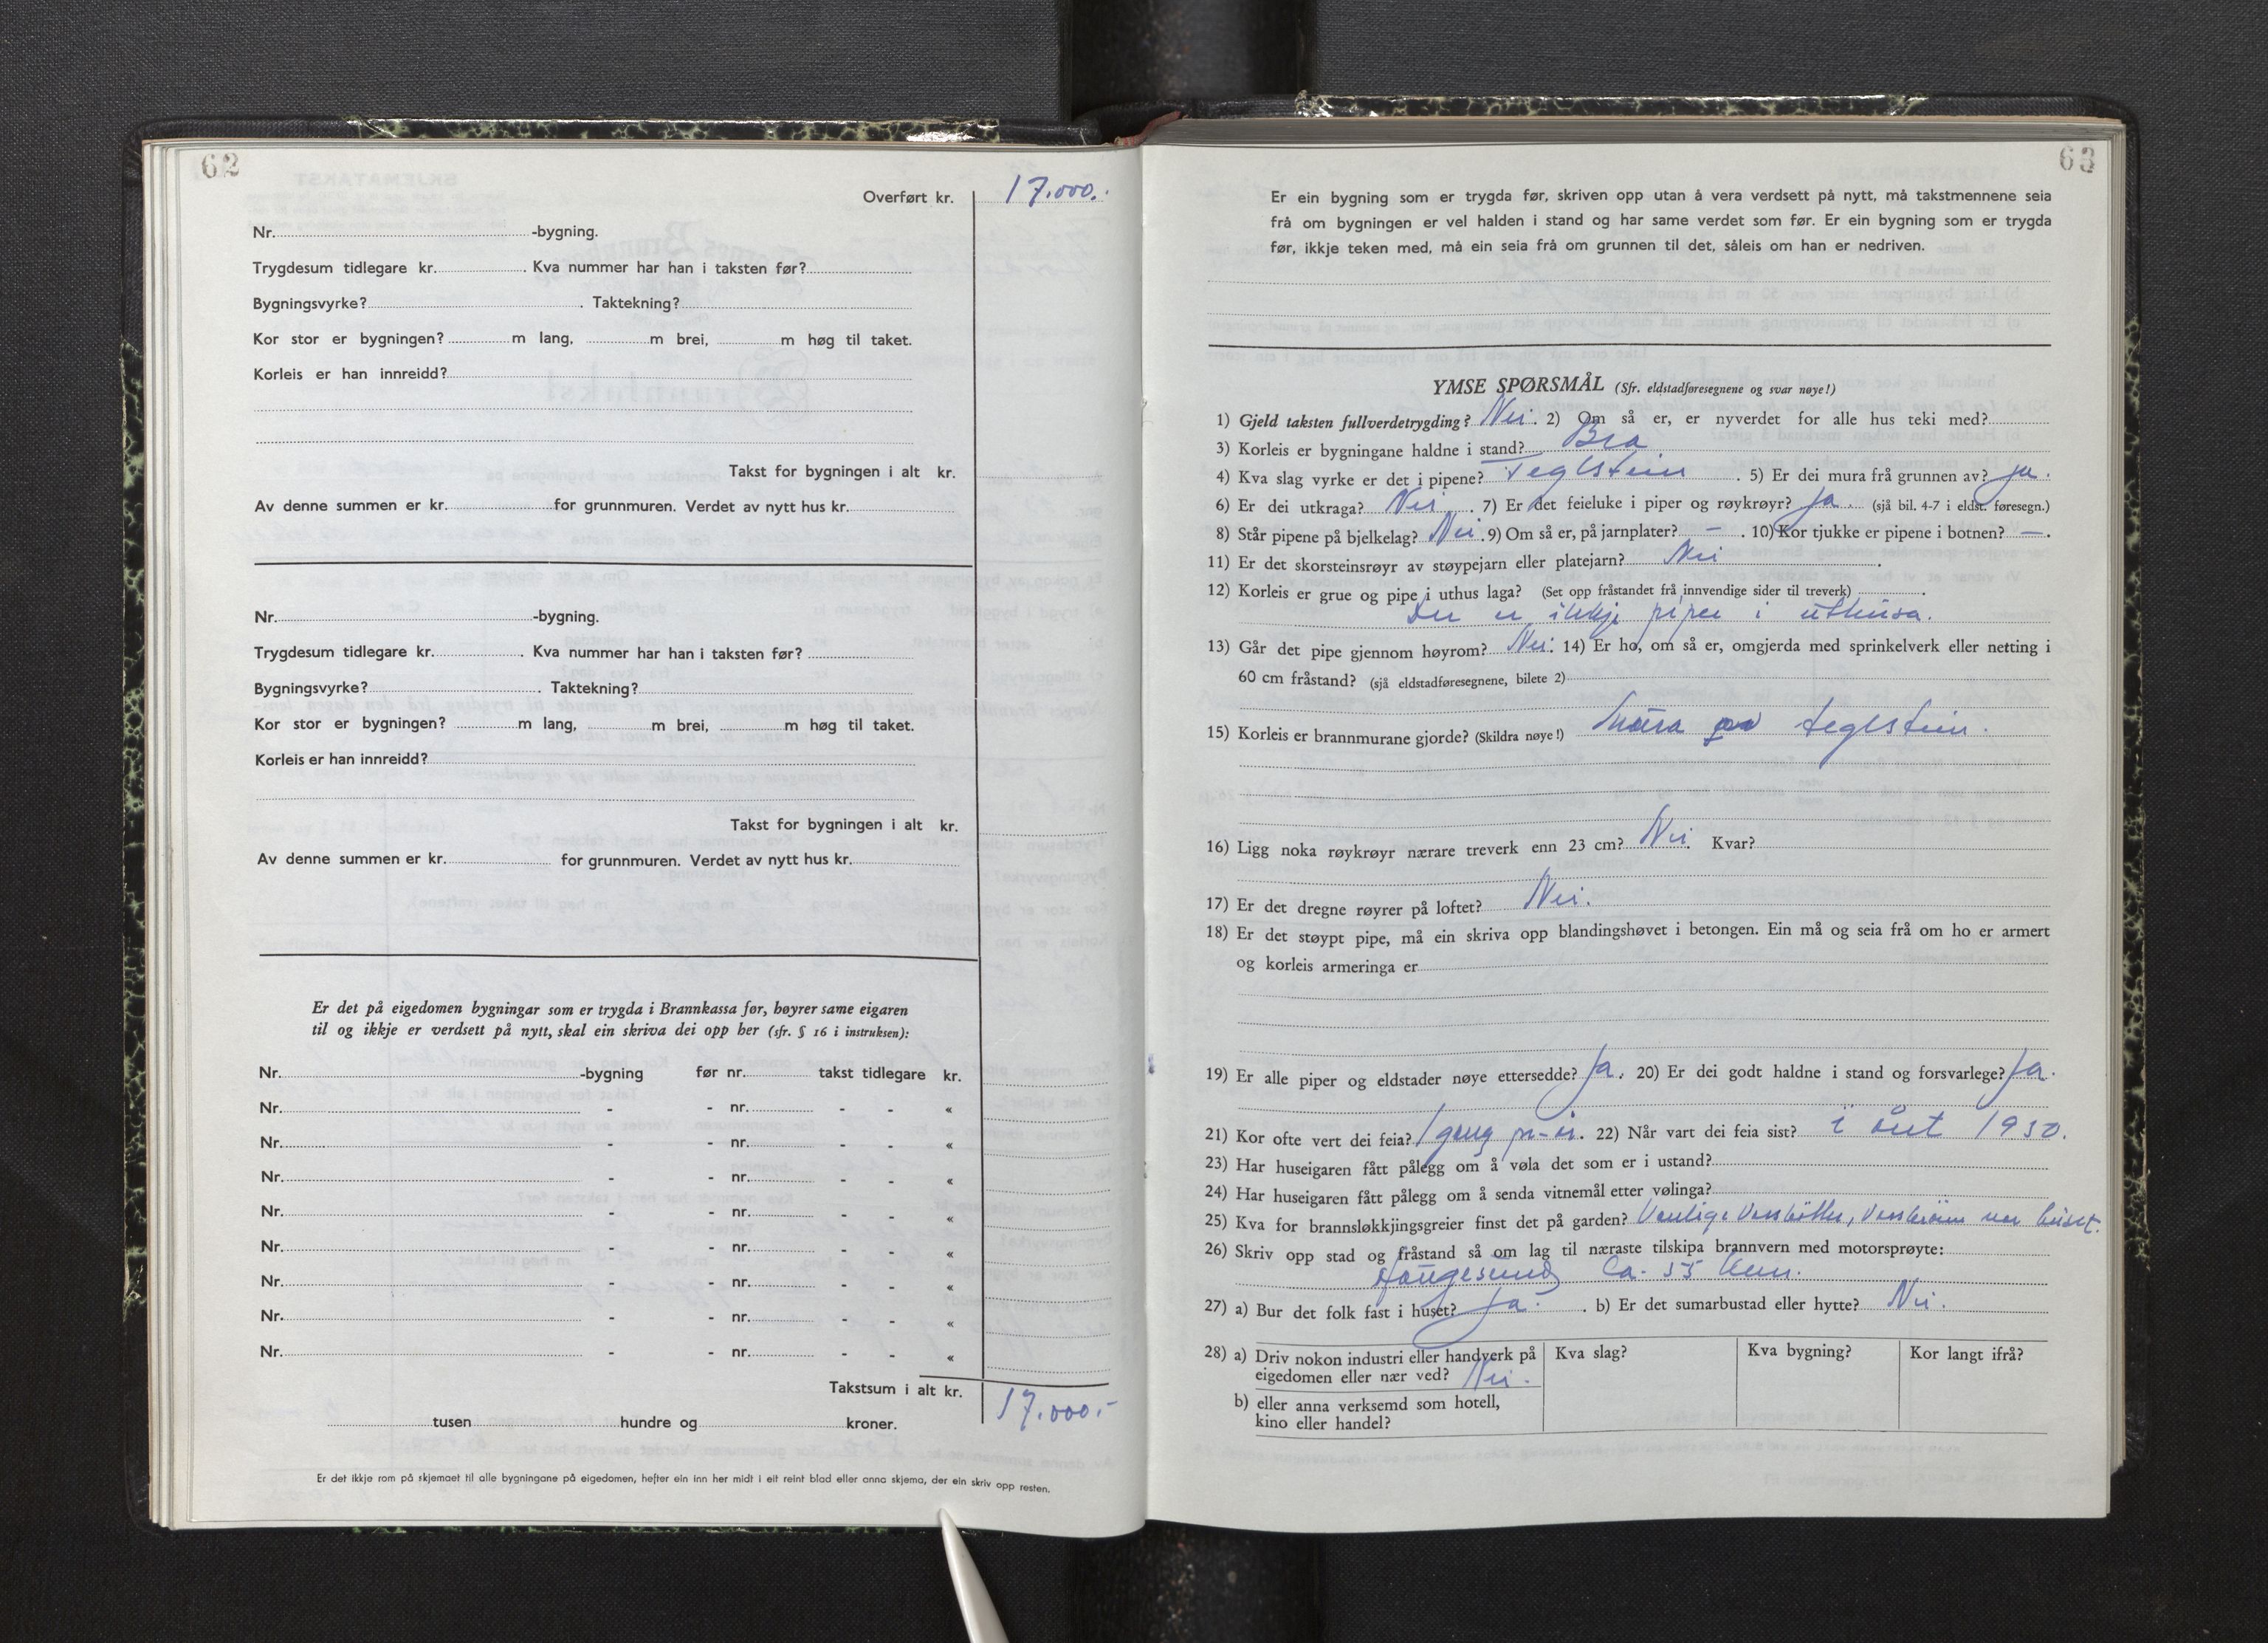 62
Overført kr. 17.000.-
Nr. -bygning.
Trygdesum tidlegare kr. . Kva nummer har han i taksten før?
Bygningsvyrke? . Taktekning?
Kor stor er bygningen? m lang, m brei, m høg til taket.
Korleis er han innreidd?
Takst for bygningen i alt kr.
Av denne summen er kr. for grunnmuren. Verdet av nytt hus kr.
Nr. -bygning.
Trygdesum tidlegare kr. . Kva nummer har han i taksten før?
Bygningsvyrke? . Taktekning?
Kor stor er bygningen? m lang, m brei, m høg til taket.
Korleis er han innreidd?
Takst for bygningen i alt kr.
Av denne summen er kr. for grunnmuren. Verdet av nytt hus kr.
Er det på eigedomen bygningar som er trygda i Brannkassa før, høyrer same eigaren
til og ikkje er verdsett på nytt, skal ein skriva dei opp her (sfr. § 16 i instruksen):
Nr. -bygning før nr. takst tidlegare kr.
Nr. - - nr. - - «
Nr. - - nr. - - «
Nr. - - nr. - - «
Nr. - - nr. - - «
Nr. - - nr. - - «
Nr. - - nr. - - «
Nr. - - nr. - - «
Nr. - - nr. - - «
Takstsum i alt kr. 17.000.-
tusen hundre og kroner.
Er det ikkje rom på skjemaet til alle bygningane på eigedomen, hefter ein inn her midt i eit reint blad eller anna skjema, der ein skriv opp resten.
63
Er ein bygning som er trygda før, skriven opp utan å vera verdsett på nytt, må takstmennene seia
frå om bygningen er vel halden i stand og har same verdet som før. Er ein bygning som er trygda
før, ikkje teken med, må ein seia frå om grunnen til det, såleis om han er nedriven.
YMSE SPØRSMÅL (Sfr. eldstadføresegnene og svar nøye!)
1) Gjeld taksten fullverdetrygding? Nei. 2) Om så er, er nyverdet for alle hus teki med?
3) Korleis er bygningane haldne i stand? Bra
4) Kva slag vyrke er det i pipene? Teglstein . 5) Er dei mura frå grunnen av? ja.
6) Er dei utkraga? Nei . 7) Er det feieluke i piper og røykrøyr? Ja (sjå bil. 4-7 i eldst. føresegn.)
8) Står pipene på bjelkelag? Nei. 9) Om så er, på jarnplater? – . 10) Kor tjukke er pipene i botnen? – .
11) Er det skorsteinsrøyr av støypejarn eller platejarn? Nei .
12) Korleis er grue og pipe i uthus laga? (Set opp fråstandet frå innvendige sider til treverk) .
Der er ikkje piper i uthusa.
13) Går det pipe gjennom høyrom? Nei. 14) Er ho, om så er, omgjerda med sprinkelverk eller netting i
60 cm fråstand? (sjå eldstadføresegnene, bilete 2)
15) Korleis er brannmurane gjorde? (Skildra nøye!) Mura av teglstein.
16) Ligg noka røykrøyr nærare treverk enn 23 cm? Nei. Kvar?
17) Er det dregne røyrer på loftet? Nei.
18) Er det støypt pipe, må ein skriva opp blandingshøvet i betongen. Ein må og seia frå om ho er armert
og korleis armeringa er
19) Er alle piper og eldstader nøye ettersedde? Ja. 20) Er dei godt haldne i stand og forsvarlege? Ja.
21) Kor ofte vert dei feia? 1 gang pr. år. 22) Når vart dei feia sist? i året 1950.
23) Har huseigaren fått pålegg om å vøla det som er i ustand?
24) Har huseigaren fått pålegg om å senda vitnemål etter vølinga?
25) Kva for brannsløkkjingsgreier finst det på garden? Vanlige Vassbøtter, Vassbrønn nær huset.
26) Skriv opp stad og fråstand så om lag til næraste tilskipa brannvern med motorsprøyte:
Haugesund ca. 55 km.
27) a) Bur det folk fast i huset? Ja. . b) Er det sumarbustad eller hytte? Nei.
28) a) Driv nokon industri eller handverk på Kva slag? Kva bygning? Kor langt ifrå?
eigedomen eller nær ved? Nei.
b) eller anna verksemd som hotell,
kino eller handel?